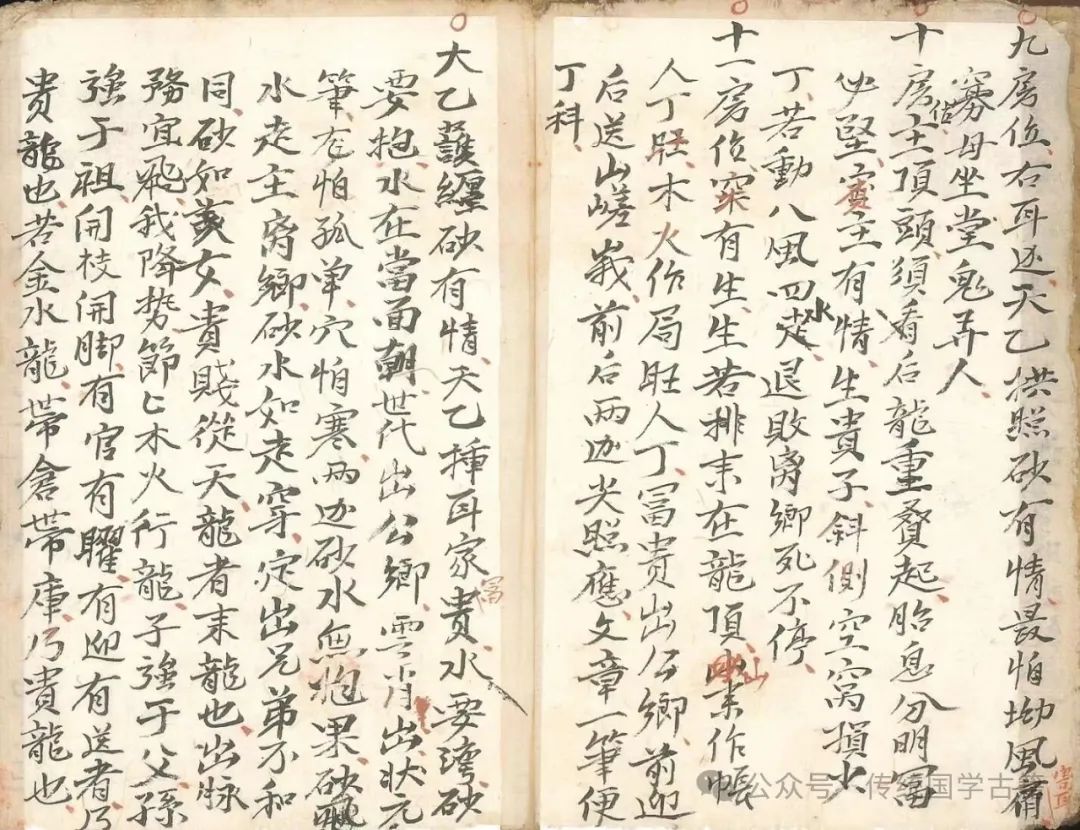 九房位右耳边天乙拱照砂有情最怕坳風
寡母坐堂鬼弄人
十房佔主頂頭須看后龍重疊起胎息分明富
必堅賓主有情生貴子斜側空窩損少
丁若動八風四水走退敗离鄉死不停
十一房位窠有生生若排末在龍頂山來作帳
人丁旺木火作局旺人丁富贵出公卿前迎
后送山嵯峩前后兩边尖照應文章一筆便
丁科
大乙護纏砂有情天乙揷耳家富贵水要湾砂
要抱水在當面朝世代出公卿雲肖出狀元
筆左怕孤单穴怕寒兩边砂水無抱果砂飛
水走主离鄉砂水如走穿定出兄弟不和
同砂如美女貴賤從天龍者末龍也出脉
務宜飛我降势節匕木火行龍子强于父孫
强于祖開枝開脚有官有曜有迎有送者乃
贵龍也若金水龍帶倉帶庫乃貴龍也
公众号·传统国学古籍